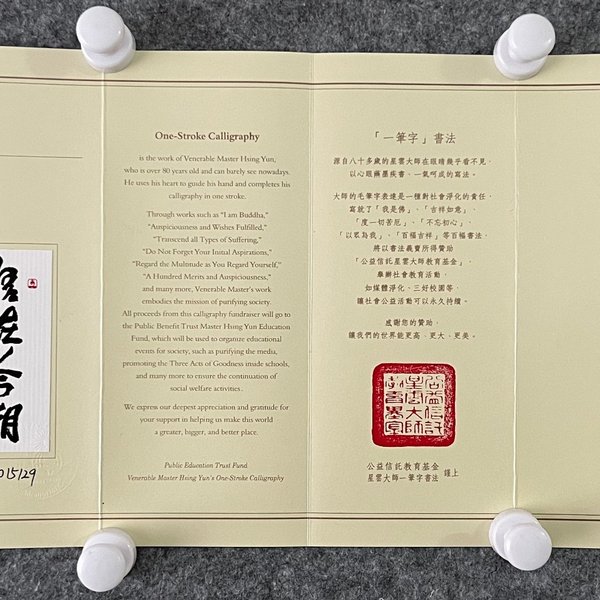 在今朝
15129
One-Stroke Calligraphy
is the work of Venerable Master Hsing Yun,
who is over 80 years old and can barely see nowadays.
He uses his heart to guide his hand and completes his
calligraphy in one stroke.
Through works such as "I am Buddha,"
"Auspiciousness and Wishes Fulfilled,"
"Transcend all Types of Suffering,"
"Do Not Forget Your Initial Aspirations,"
"Regard the Multitude as You Regard Yourself,"
"A Hundred Merits and Auspiciousness."
and many more, Venerable Master's work
embodies the mission of purifying society.
All proceeds from this calligraphy fundraiser will go to
the Public Benefit Trust Master Hsing Yun Education
Fund, which will be used to organize educational
events for society, such as purifying the media,
promoting the Three Acts of Goodness inside schools,
and many more to ensure the continuation of
social welfare activities.
We express our deepest appreciation and gratitude for
your support in helping us make this world
a greater, bigger, and better place.
Public Education Trust Fund
Venerable Master Hsing Yun's One-Stroke Calligraphy
「一筆字」書法
源自八十多歲的星雲大師在眼睛幾乎看不見,
以心眼蘸墨疾書、一氣呵成的寫法。
大師的毛筆字表達是一種對社會淨化的責任,
寫就了「我是佛」、「吉祥如意」、
「度一切苦厄」、「不忘初心」、
「以眾為我」、「百福吉祥」等百福書法,
將以書法義賣所得贊助
「公益信託星雲大師教育基金」,
舉辦社會教育活動,
如媒體淨化、三好校園等,
讓社會公益活動可以永久持續。
感謝您的贊助,
讓我們的世界能更高、更大、更美。
公益信託
星雲大師
教育基金
公益信託教育基金
星雲大師一筆字書法 謹上